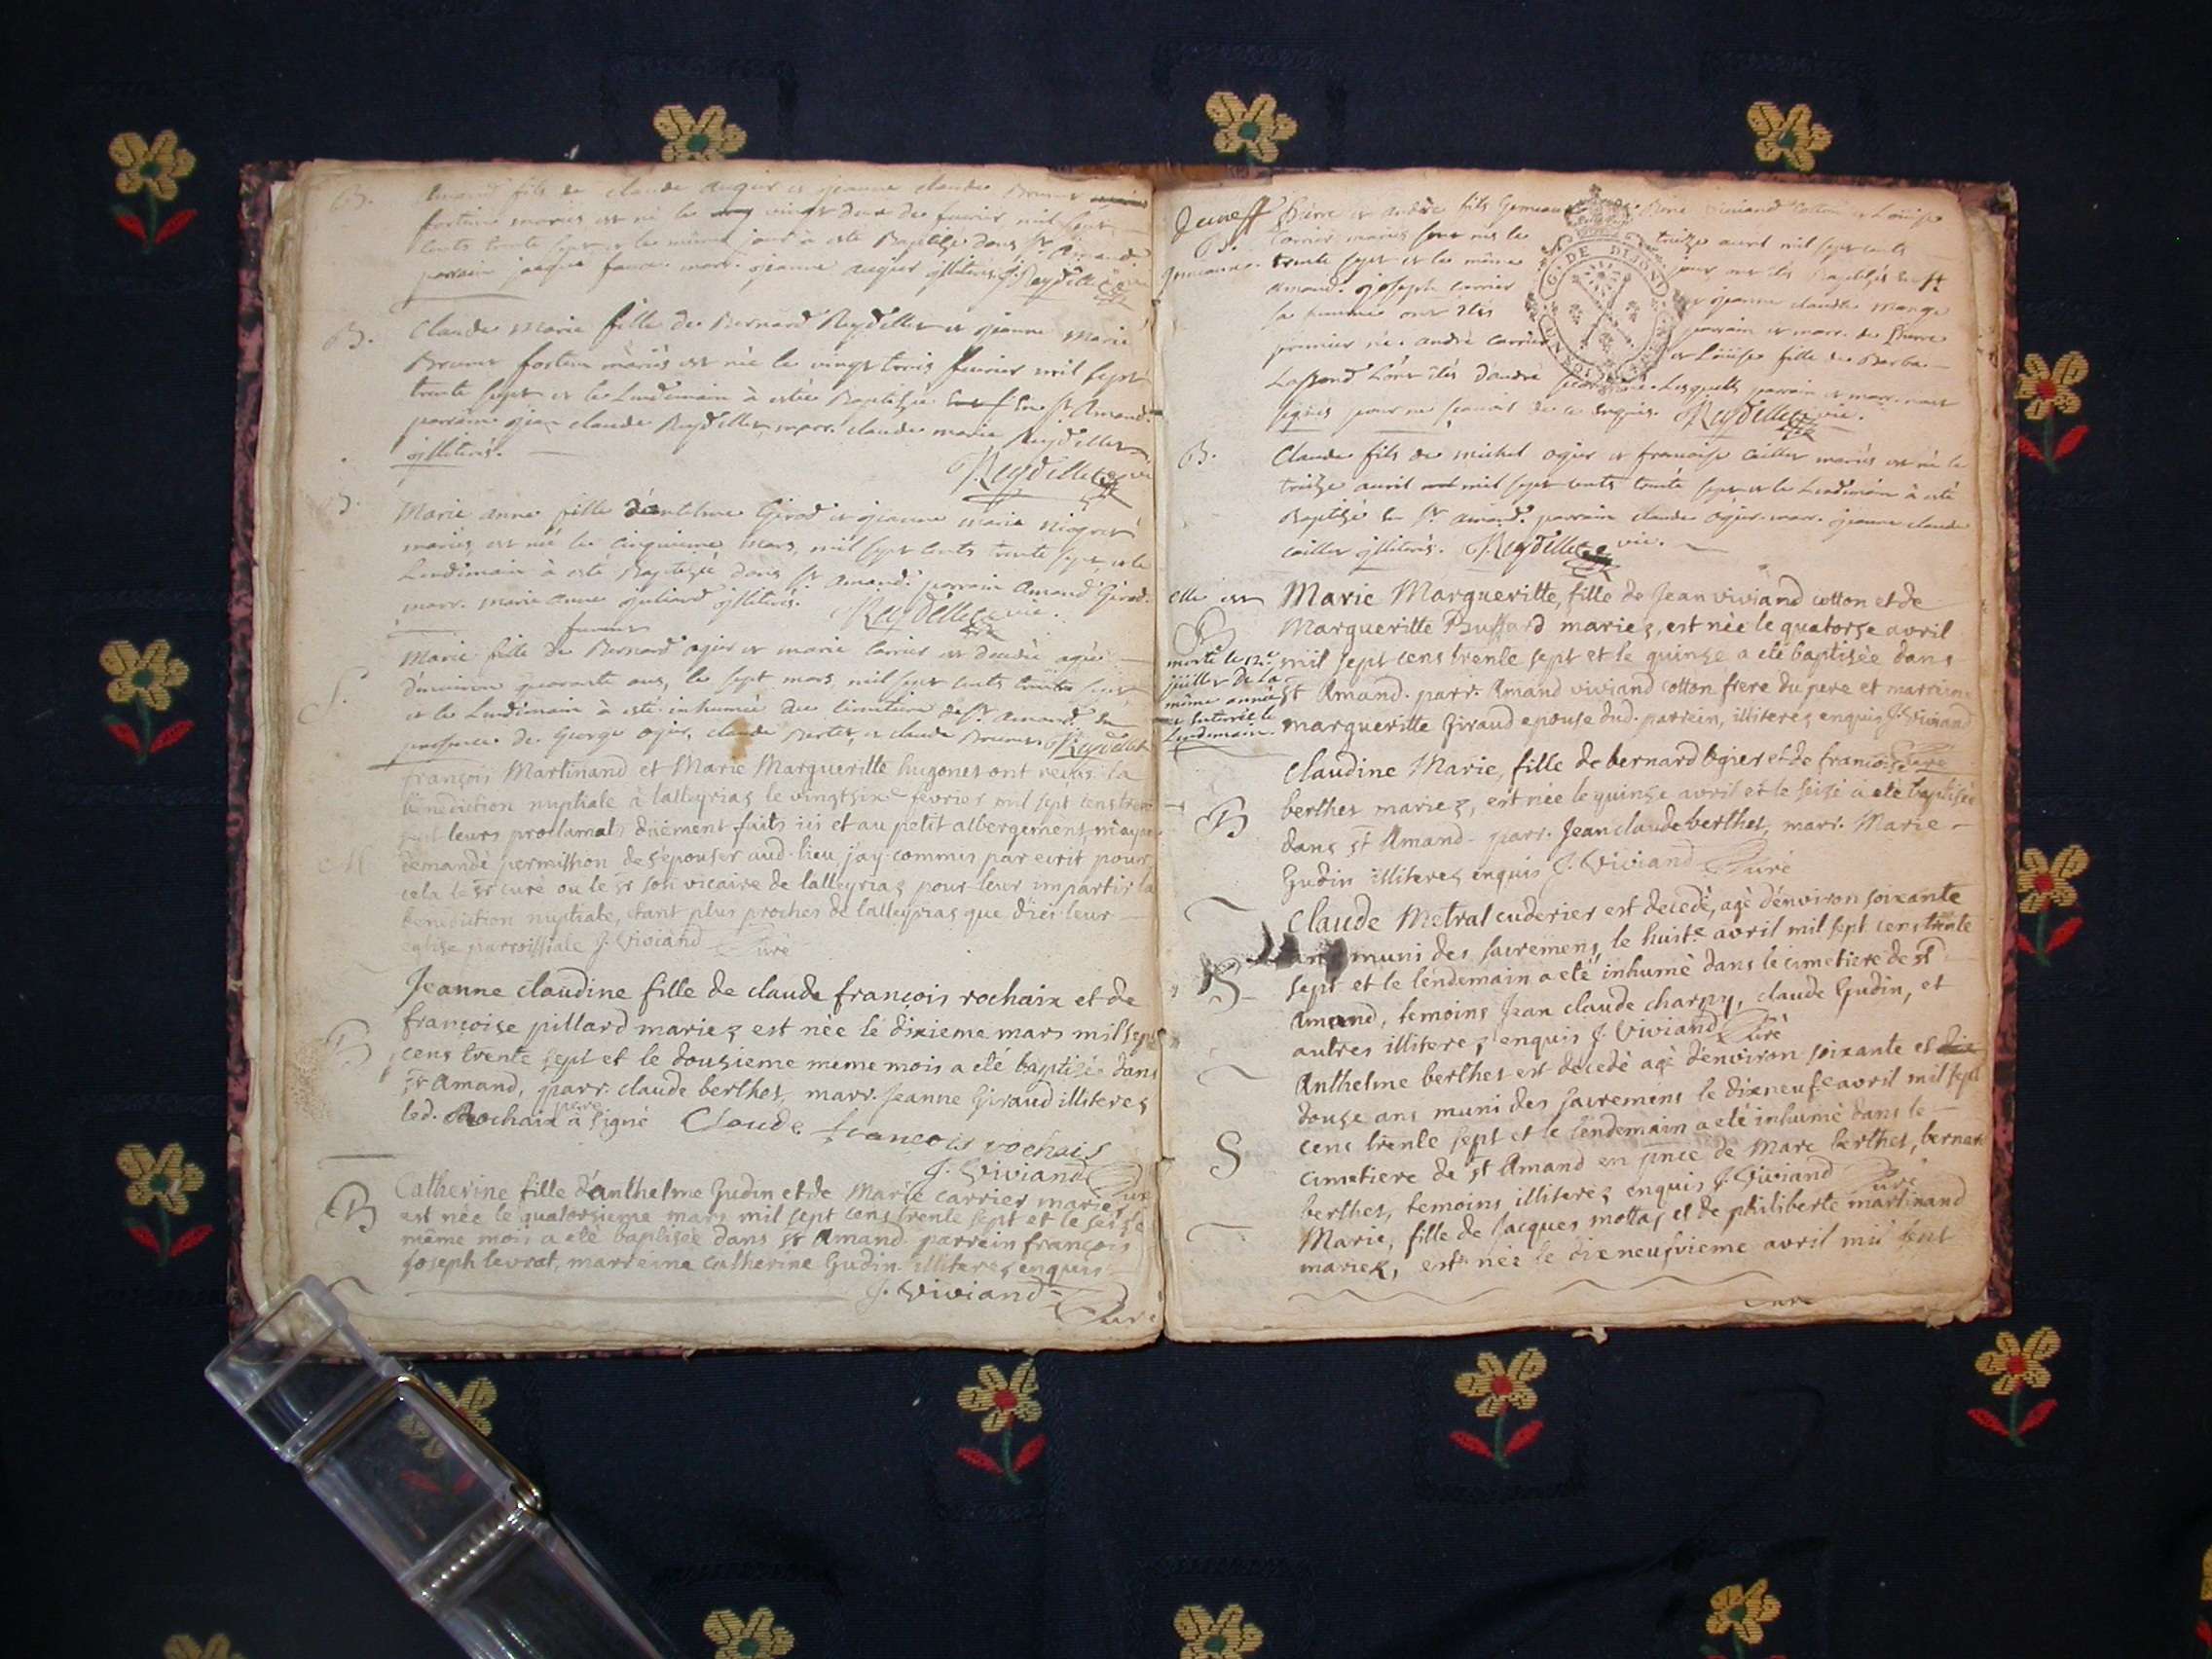 B. Amand fils de claude augier et jeanne claude Brunet
fortin mariés est né le vingt deux de feurier mil sept
cents trente sept et le même jour à esté Baptizé dans st Amand.
parrain jacque marr. jeanne augier illiterés. Reydellet vic.
B. Claude Marie fille de Bernard Reydellet et jeanne Marie
Brunet fortin mariés est née le vingt trois feurier mil sept
trente sept et le Lendimain à estée Baptizée En st Amand.
parrain jean claude Reydellet, marr. claude marie Reydellet
illiterés.
Reydellet vic
B. Marie anne fille d'antelme Girod et jeanne marie
mariés, est née le cinquieme mars, mil sept cents trente sept, et le
Lendimain à esté Baptizée dans st Amand. parrain Amand Girod.
marr. marie anne juliard illiterés. Reydellet vic.
Marie fille de Bernard ogier et marie carrier est decedée agée
d'enuiron quarante ans, le sept mars mil sept cents trente sept
S. et le Lendimain à esté inhumée au cimitiere de st amand. En
presence de George ogier, claude Bertet, et claude Brunet. Reydellet
françois Martinand et Marie Margueritte hugonet ont reçus la
bénédiction nuptiale à lalleyrias le vingtsixe fevrier mil sept cens trente
sept leurs proclamats düement faits ici et au petit albergement, m'ayant
M demandé permission de s'epouser aud. lieu j'ay commis par ecrit pour
cela le sr curé ou le sr son vicaire de lalleyrias pour leur impartir la
benediction nuptiale, étant plus proches de lalleyrias que d'ici leur
eglise parroissiale J. Viviand Curé
Jeanne claudine fille de claude françois rochaix et de
françoise pillard mariez est née le dixieme mars mil sept
B cens trente sept et le douzieme meme mois a eté baptisée dans
st Amand, parr. claude berthet, marr. Jeanne Giraud illiterez
led. Rochaix pere à signé Claude francois rochais
J. Viviand Curé
B Catherine fille d'anthelme Gudin et de Marie carrier mariez
est née le quatorzieme mars mil sept cens trente sept et le seize
même mois a eté baptisée dans st Amand parrein françois
joseph levrat, marreine catherine Gudin illiterez enquis
J. Viviand Curé
Pierre et andré fils Gemeaux de Pierre viviand cotton et Louise
B. carrier mariés sont nés le treize auril mil sept cents
Gemeaux. trente sept et le même jour ont étés Baptizés En st
amand. joseph carrier et jeanne claudine mange
sa femme ont étés parrain et marr. de Pierre
premier né. andré carrier et Loüise fille de Barbe
second né. Lesquels parrain et marr. n'ont
signés pour ne sçauoir de ce enquis. Reydellet vic.
B. Claude fils de michel ogier et francoise caillet mariés est né le
treize auril mil sept cents trente sept et le Lendimain à esté
Baptizé En st amand. parrain claude ogier. marr. jeanne claude
caillet illiterés. Reydellet vic.
elle est Marie Margueritte, fille de Jean viviand cotton et de
B Margueritte Buffard mariez, est née le quatorse avril
morte le 12e mil sept cens trente sept et le quinze a eté baptisée dans
juillet de la st Amand. parr. Amand viviand cotton frere du pere et marreine
même année margueritte Giraud epouse dud. parrein, illiterez enquis J. Viviand
et enterrée le
Lendemain.
Curé
Claudine Marie, fille de bernard ogier et de françoise
B berthet mariez, est née le quinze avril et le seize a eté baptisée
dans st Amand. parr. Jean claude berthet, marr. Marie
Gudin illiterez enquis J. Viviand Curé
Claude Metral cuderier est decedé, agé d'environ soixante
ans muni des sacremens, le huite avril mil sept cens trente
S sept et le lendemain a eté inhumé dans le cimetiere de st
Amand, temoins Jean claude charpy, claude Gudin, et
autres illiterez enquis J. Viviand Curé
Anthelme berthet est decedé agé d'environ soixante et dix
douze ans muni des sacremens le dixneufe avril mil sept
S cens trente sept et le lendemain a eté inhumé dans le
cimetiere de st Amand en pnce de Marc berthet, bernard
berthet, temoins illiterez enquis J. Viviand Curé
Marie, fille de Jacques mottas et de philiberte martinand
mariez, est née le dixneufvieme avril mil sept
G. DE DIJON